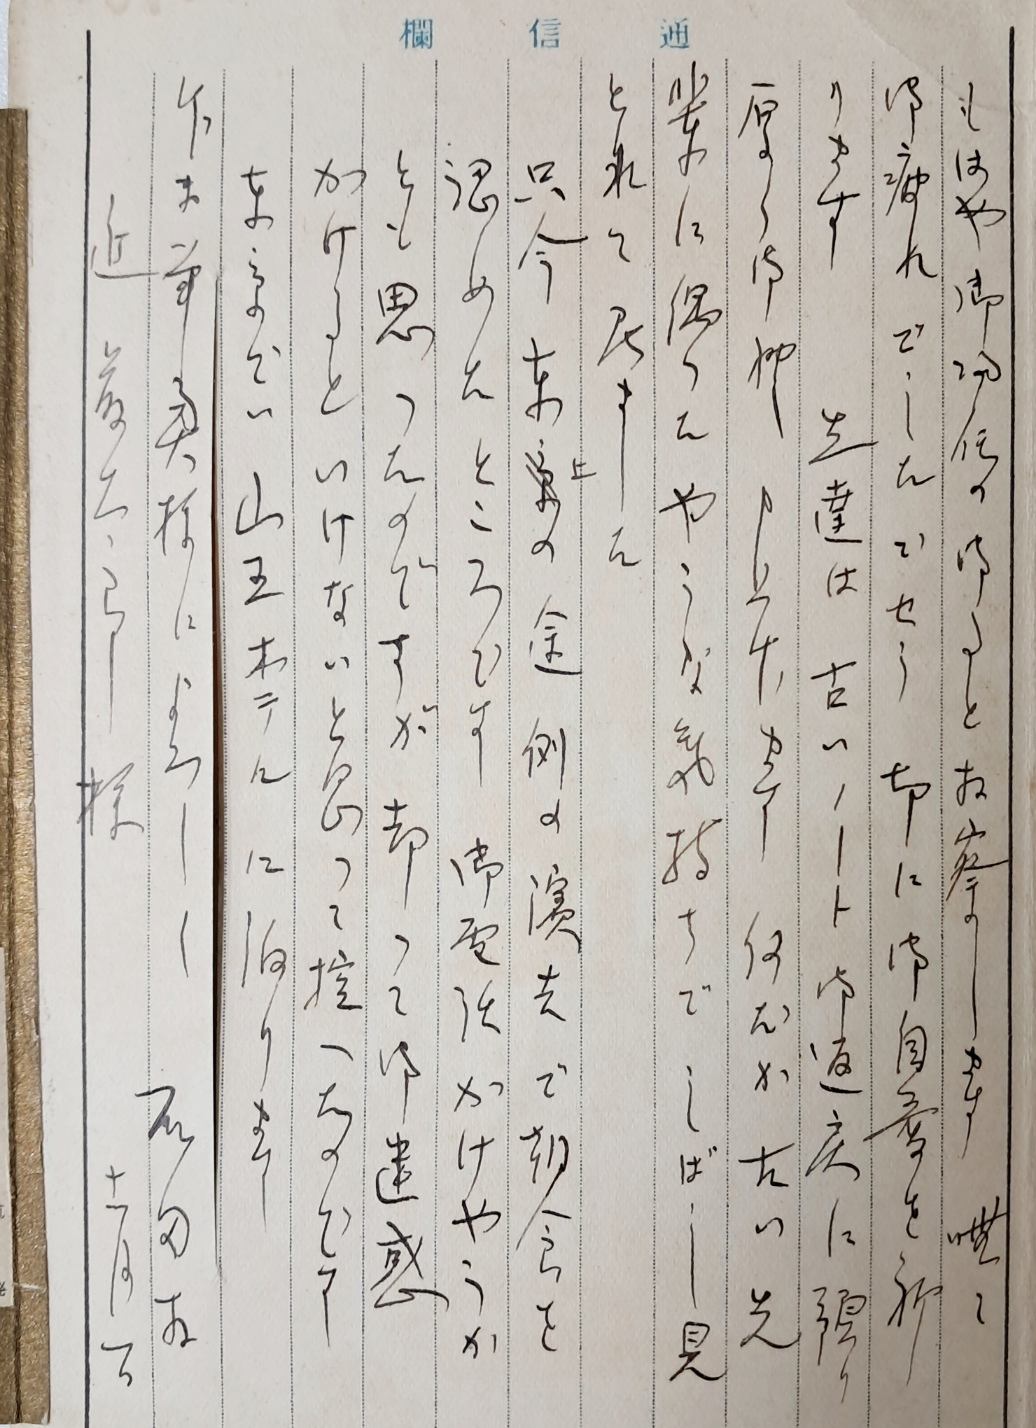 通信欄
もはや御帰信の御ことお察しします 嘸て
御疲れでしたでせう 切に御自愛を祈
ります 先達は古いノート御返戻に預り
厚く御礼申上げます 何だか古い先
輩に偶つたやうな気持ちでしばし見
とれて居ました
只今東京上の途 例の濱夫で朝食を
認めたところです 御電話かけやうか
とも思つたのですが却つて御迷惑
かけるといけないと思つて控へたのです
東京では山王ホテルに泊ります
乍末筆奥様によろしく
近 様 十一月一日